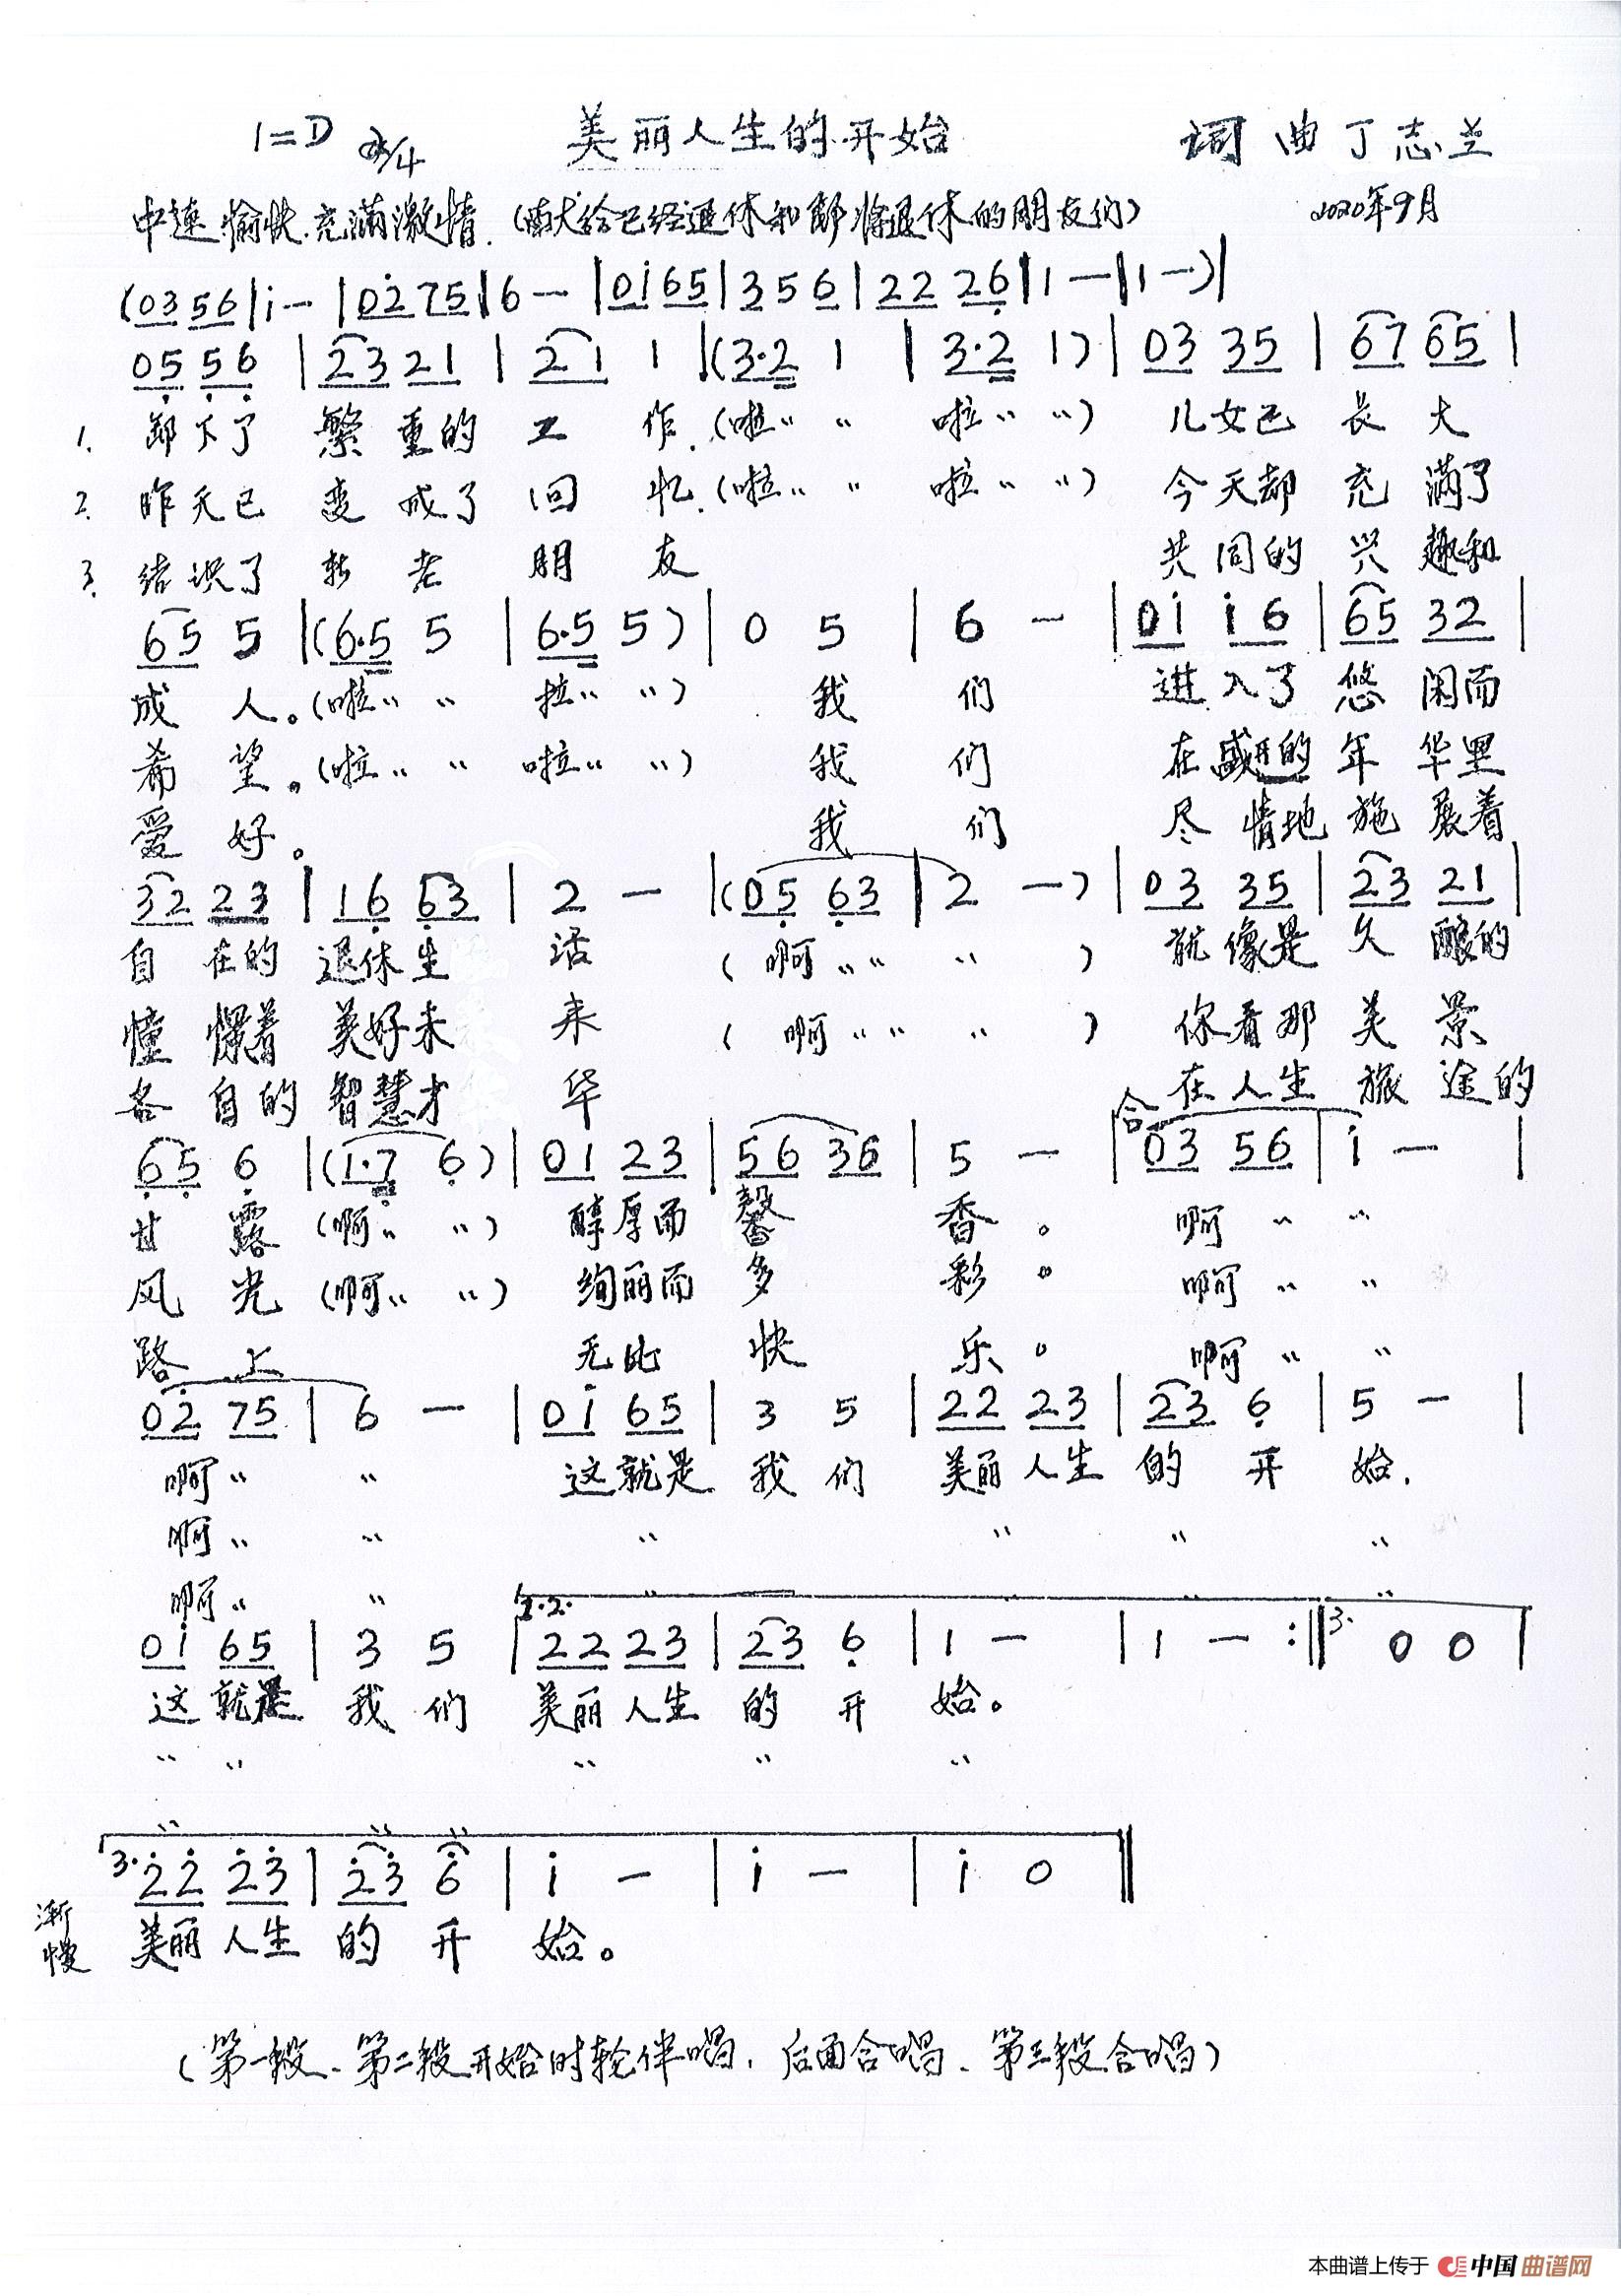 1=D 2/4 美丽人生的开始 词曲丁志兰
中速 愉快.充满激情.(献给已经退休和即将退休的朋友们) 2020年9月
(03 56 | i — | 02̇ 75 | 6 — | 0i 65 | 3 5 6 | 22 26̣ | 1 — | 1 —) |
05̣ 5̣6̣ | 23 21 | 21 1 | (3·2 1 | 3·2 1) | 03 35 | 67 65 |
1. 卸下了 繁重的 工作.(啦〃 〃 啦〃 〃) 儿女已 长大
2. 昨天已 变成了 回忆.(啦〃 〃 啦〃 〃) 今天却 充满了
3. 结识了 新老 朋友 共同的 兴趣和
65 5 | (6·5 5 | 6·5 5) | 0 5 | 6 — | 0i i6 | 65 32 |
成人。(啦〃 〃 拉〃 〃) 我们 进入了 悠闲而
希望。(啦〃 〃 啦〃 〃) 我们 在盛开的 年华里
爱好。 我们 尽情地 施展着
32 23 | 16̣ 6̣3 | 2 — | (05̣ 6̣3 | 2 —) | 03 35 | 23 21 |
自在的 退休生 活 (啊〃〃 〃) 就像是 久酿的
憧憬着 美好未 来 (啊〃〃 〃) 你看那 美景
各自的 智慧才 华 在人生 旅途的
合
6̣5̣ 6̣ | (1·7̣ 6̣) | 01 23 | 56 36 | 5 — | 03 56 | i — |
甘露 (啊〃 〃) 醇厚而 馨 香。 啊〃 〃
风光 (啊〃 〃) 绚丽而 多 彩。 啊〃 〃
路上 无比 快 乐。 啊〃 〃
02̇ 75 | 6 — | 0i 65 | 3 5 | 22 23 | 23 6̣ | 5 — |
啊〃 〃 这就是 我们 美丽人生 的开 始.
啊〃 〃 〃 〃 〃 〃
啊〃 〃 〃 〃 〃
1.2. 3.
0i 65 | 3 5 | 22 23 | 23 6̣ | 1 — | 1 — :‖ 0 0 |
这就是 我们 美丽人生 的开 始。
〃 〃 〃 〃 〃
〃 〃 〃
3. 2̇2̇ 2̇3̇ | 2̇3̇ 6̇ | i — | i — | i 0 ‖
渐慢 美丽人生 的开 始。
(第一段、第二段开始时轮伴唱.后面合唱、第三段合唱)
本曲谱上传于 中国曲谱网